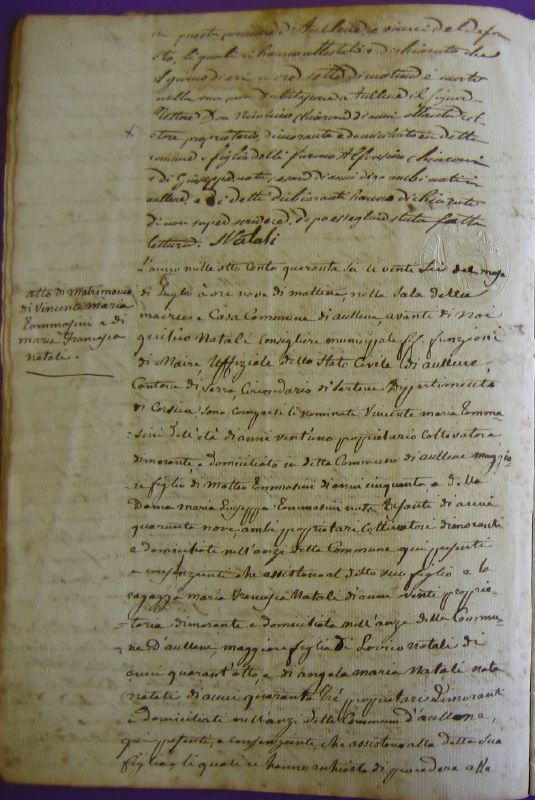 in questa comune d'Aullene, e vicini del defon
to, li quali ci hanno attestato e dichiarato che
il giorno di eri a ore sette di mattina è morto
nella sua casa d'abitazione a Aullene il signor
Don Chiaroni d'anni ottanta col
tore proprietario, dimorante e domiciliato in detta
comune, figlio delli furono Alfonsino Chiaroni
e di Giuseppa nati
aullene, e i detti dichiaranti hanno dichiarato
di non saper scrivere, dipoi eseguirsi stata fatta
lettura. Natali
L'anno mille otto cento quaranta sei li vente Sei del mese
di Luglio à ore nove di mattina, nella Sala della
mairie e Casa Commune di aullene, avante di Noi
Natale Consigliere municipale ff. funzioni
di Maire, Uffiziale dello Stato Civile di aullene,
Cantone di Serra Circondario di Sartene Dipartimento
di Corsica Sono Comparsi li nominati Vincente maria Tomma-
sini Dell'età di anni vent'uno proprietario Coltivatore
dimorante, e domiciliato in detta Commune di aullene maggio-
re figlio di Matteo Tommasini di anni cinquanta e della
Donna maria Giuseppa Tommasini nata di anni
quaranta nove, ambi proprietari Coltivatori dimoranti
e domiciliati nell'anzi detta Commune qui presenti
e consenzienti che assistono al ditto suo figlio e la
ragazza maria Francesca Natali di anni vente proprie-
taria dimorante e domiciliata nell'anze detta Commu-
ne D'aullene maggiore figlia Di natali di
anni quarant'otto, e di angela maria Natali nata
natali di anni quaranta Tré proprietari Dimoranti
e domiciliati nell'anzi detta Commune d'aullene,
qui presenti, e consenziente, che assistono alla detta Sua
figlia li quali ci hanno richiesto di procedere alla
atto di Matrimonio
di Vincente Maria
Tommasini e di
maria Francesca
natale.